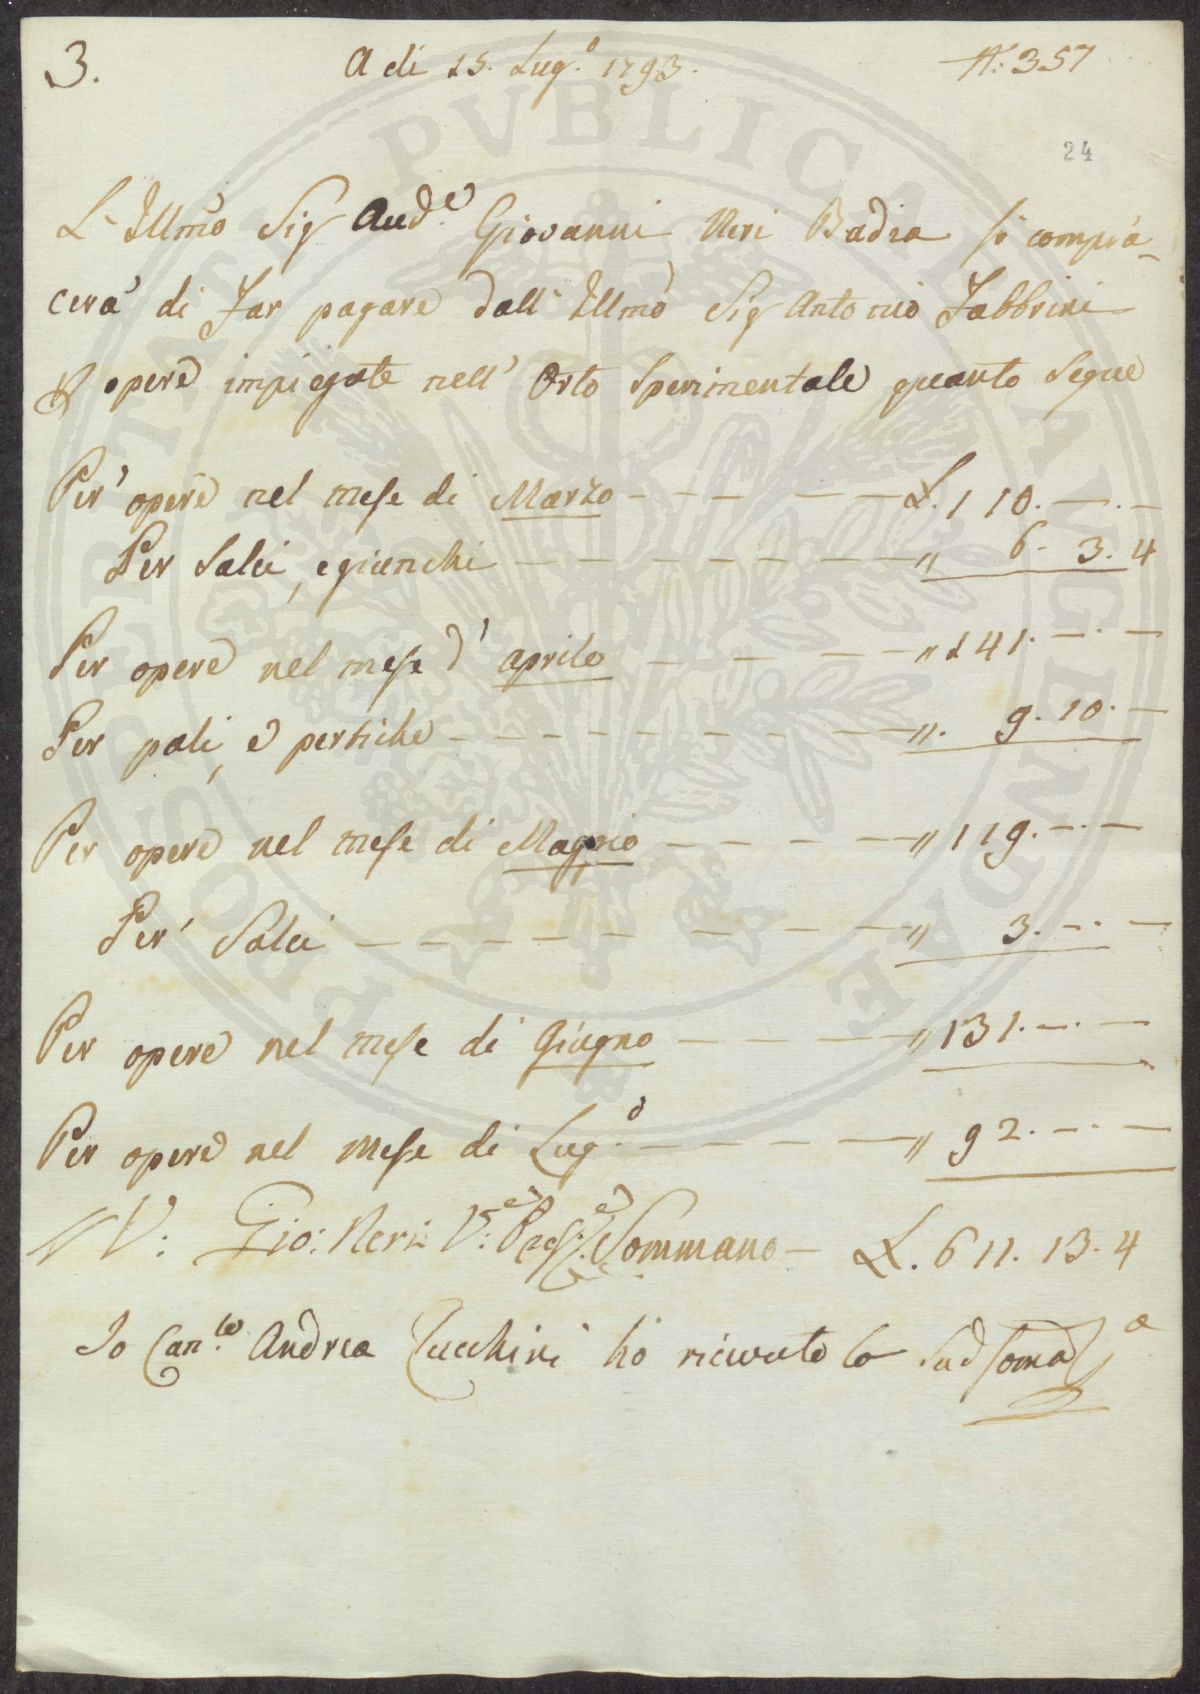 3. A di 15. Lug.o 1793. N: 357
24
L'Illmo Sig Aud.e Giovanni Neri Badia si compia-
cerà di far pagare dall' Illmo Sig Antonio Fabbrini
opere impiegate nell' Orto Sperimentale quanto Segue
Per opere nel mese di Marzo - - - - - L. 110. — . —
Per Salci, e giunchi - - - - - - - " 6. 3. 4
Per opere nel mese d' aprile - - - - " 141. — . —
Per pali, e pertiche - - - - - - - ". 9. 10. —
Per opere nel mese di Maggio - - - - " 119. — . —
Per Salci - - - - - - - - " 3. — . —
Per opere nel mese di Giugno - - - - " 131. — . —
Per opere nel mese di Lug.o - - - - " 92. — . —
V: Gio: Neri V.e Pres.e Sommano — L. 611. 13. 4
Io Can.co Andrea Zucchini ho ricevuto la Sud Somma
PROSPERITATI PVBLICAE AVGENDAE